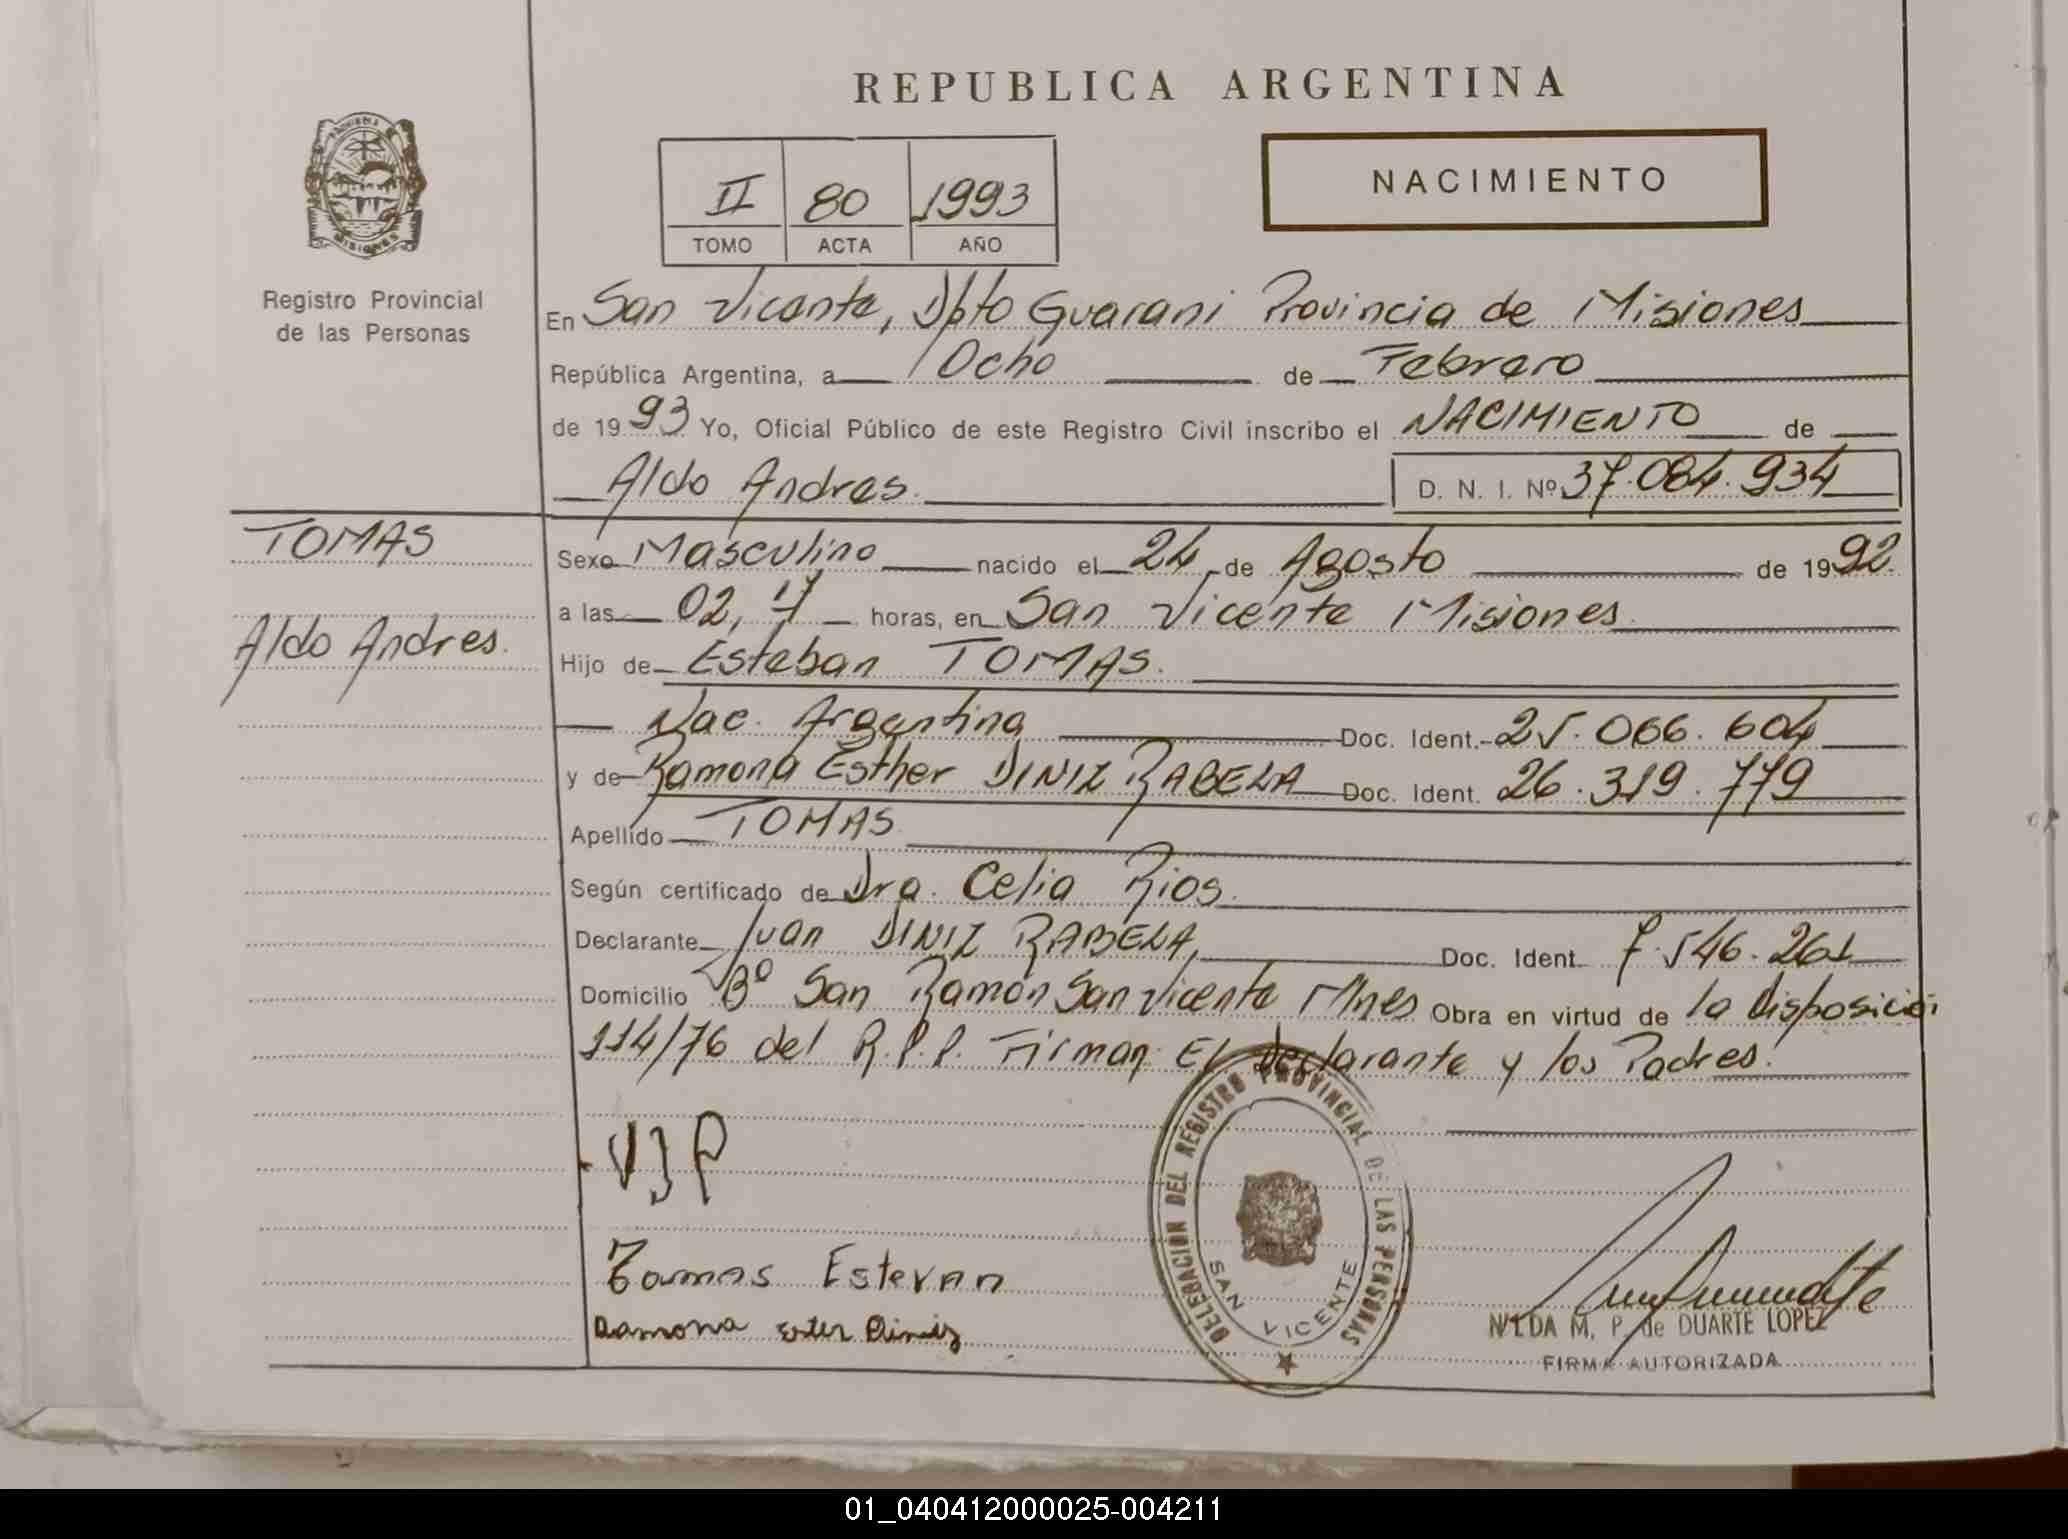 REPUBLICA ARGENTINA
NACIMIENTO
II 80 1993
TOMO ACTA AÑO
PROVINCIA DE
MISIONES
Registro Provincial
de las Personas
En San Vicente, Dpto Guarani Provincia de Misiones
República Argentina, a Ocho de Febrero
de 1993 Yo, Oficial Público de este Registro Civil inscribo el NACIMIENTO de
Aldo Andres. D. N. I. Nº 37.084.934
TOMAS
Aldo Andres.
Sexo Masculino nacido el 24 de Agosto de 1992.
a las 02, horas, en San Vicente Misiones
Hijo de Esteban TOMAS.
Nac. Argentina Doc. Ident. 25.066.604
y de Ramona Esther DINIZ RABELA Doc. Ident. 26.319.779
Apellido TOMAS
Según certificado de Dra. Celia Rios.
Declarante Juan DINIZ RABELA, Doc. Ident. 7.546.261
Domicilio Bº San Ramón San Vicente Mnes Obra en virtud de la Disposició
114/76 del R.P.P. Firman: El Declarante y los Padres.
Tomas Estevan
Ramona ester Diniz
DELEGACION DEL REGISTRO PROVINCIAL DE LAS PERSONAS
SAN VICENTE
NILDA M. P. de DUARTE LOPEZ
FIRMA AUTORIZADA
01_040412000025-004211